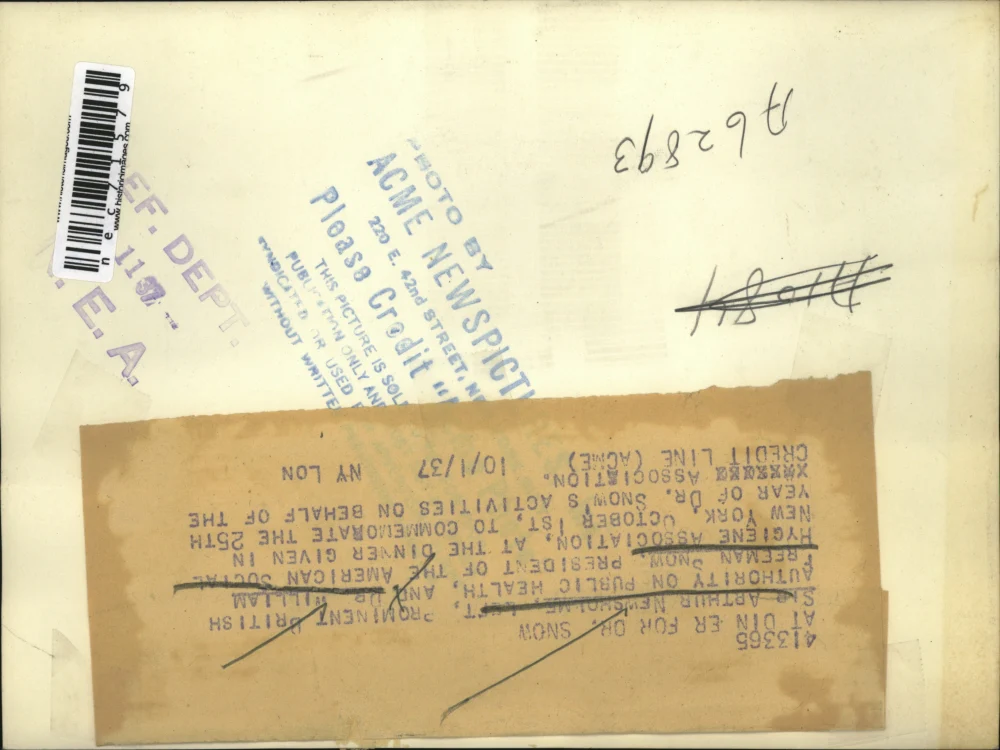 A62893
PHOTO BY
ACME NEWSPICT
220 E. 42nd STREET, NE
Please Credit "A
THIS PICTURE IS SOL
PUBLICATION ONLY AND
SYNDICATED OR USED
WITHOUT WRITTE
EF. DEPT.
1937
E. A.
www.historicimages.com
nec71579
413365
AT DIN ER FOR DR. SNOW
SIR ARTHUR NEWSHOLME, LEFT, PROMINENT BRITISH
AUTHORITY ON PUBLIC HEALTH, AND DR. WILLIAM
FREEMAN SNOW, PRESIDENT OF THE AMERICAN SOCIAL
HYGIENE ASSOCIATION, AT THE DINNER GIVEN IN
NEW YORK, OCTOBER 1ST, TO COMMEMORATE THE 25TH
YEAR OF DR. SNOW'S ACTIVITIES ON BEHALF OF THE
ASSOCIATION.
CREDIT LINE (ACME) 10/1/37 NY LON